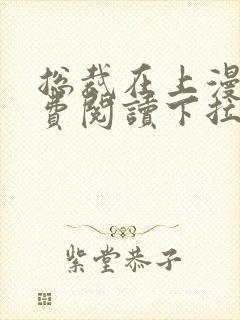 总裁在上漫
费閱讀下拉
紫堂恭子